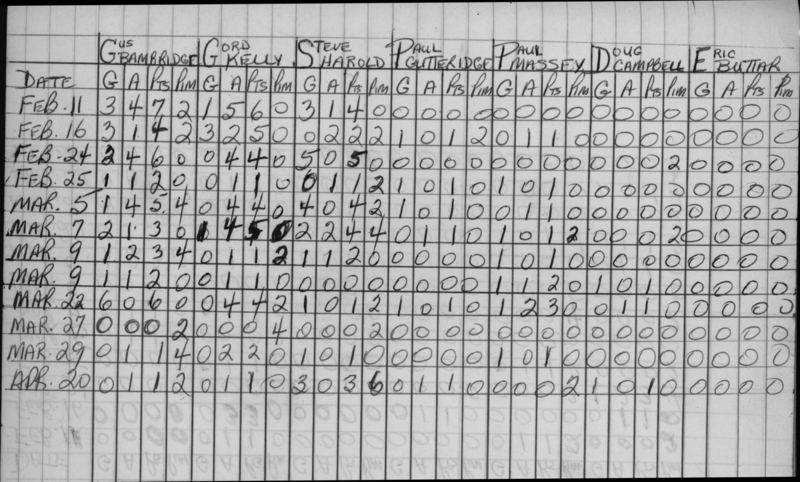 GUS GORD STEVE PAUL PAUL DOUG ERIC
BAMBRIDGE KELLY HAROLD GUTTERIDGE MASSEY CAMPBELL BUTTAR
DATE G A Pts Pim G A Pts Pim G A Pts Pim G A Pts Pim G A Pts Pim G A Pts Pim G A Pts Pim
FEB. 11 3 4 7 2 1 5 6 0 3 1 4 0 0 0 0 0 0 0 0 0 0 0 0 0 0 0 0 0
FEB. 16 3 1 4 2 3 2 5 0 0 2 2 2 1 0 1 2 0 1 1 0 0 0 0 0 0 0 0 0
FEB. 24 2 4 6 0 0 4 4 0 5 0 5 0 0 0 0 0 0 0 0 0 0 0 0 2 0 0 0 0
FEB. 25 1 1 2 0 0 1 1 0 0 1 1 2 1 0 1 0 1 0 1 0 0 0 0 0 0 0 0 0
MAR. 5 1 4 5 4 0 4 4 0 4 0 4 2 1 0 1 0 0 1 1 0 0 0 0 0 0 0 0 0
MAR. 7 2 1 3 0 1 4 5 0 2 2 4 4 0 1 1 0 1 0 1 2 0 0 0 2 0 0 0 0
MAR. 9 1 2 3 4 0 1 1 2 1 1 2 0 0 0 0 0 1 0 1 0 0 0 0 0 0 0 0 0
MAR. 9 1 1 2 0 0 1 1 0 0 0 0 0 0 0 0 0 1 1 2 0 1 0 1 0 0 0 0 0
MAR. 22 6 0 6 0 0 4 4 2 1 0 1 2 1 0 1 0 1 2 3 0 0 1 1 0 0 0 0 0
MAR. 27 0 0 0 2 0 0 0 4 0 0 0 2 0 0 0 0 0 0 0 0 0 0 0 0 0 0 0 0
MAR. 29 0 1 1 4 0 2 2 0 1 0 1 0 0 0 0 0 1 0 1 0 0 0 0 0 0 0 0 0
APR. 20 0 1 1 2 0 1 1 0 3 0 3 6 0 1 1 0 0 0 0 2 1 0 1 0 0 0 0 0